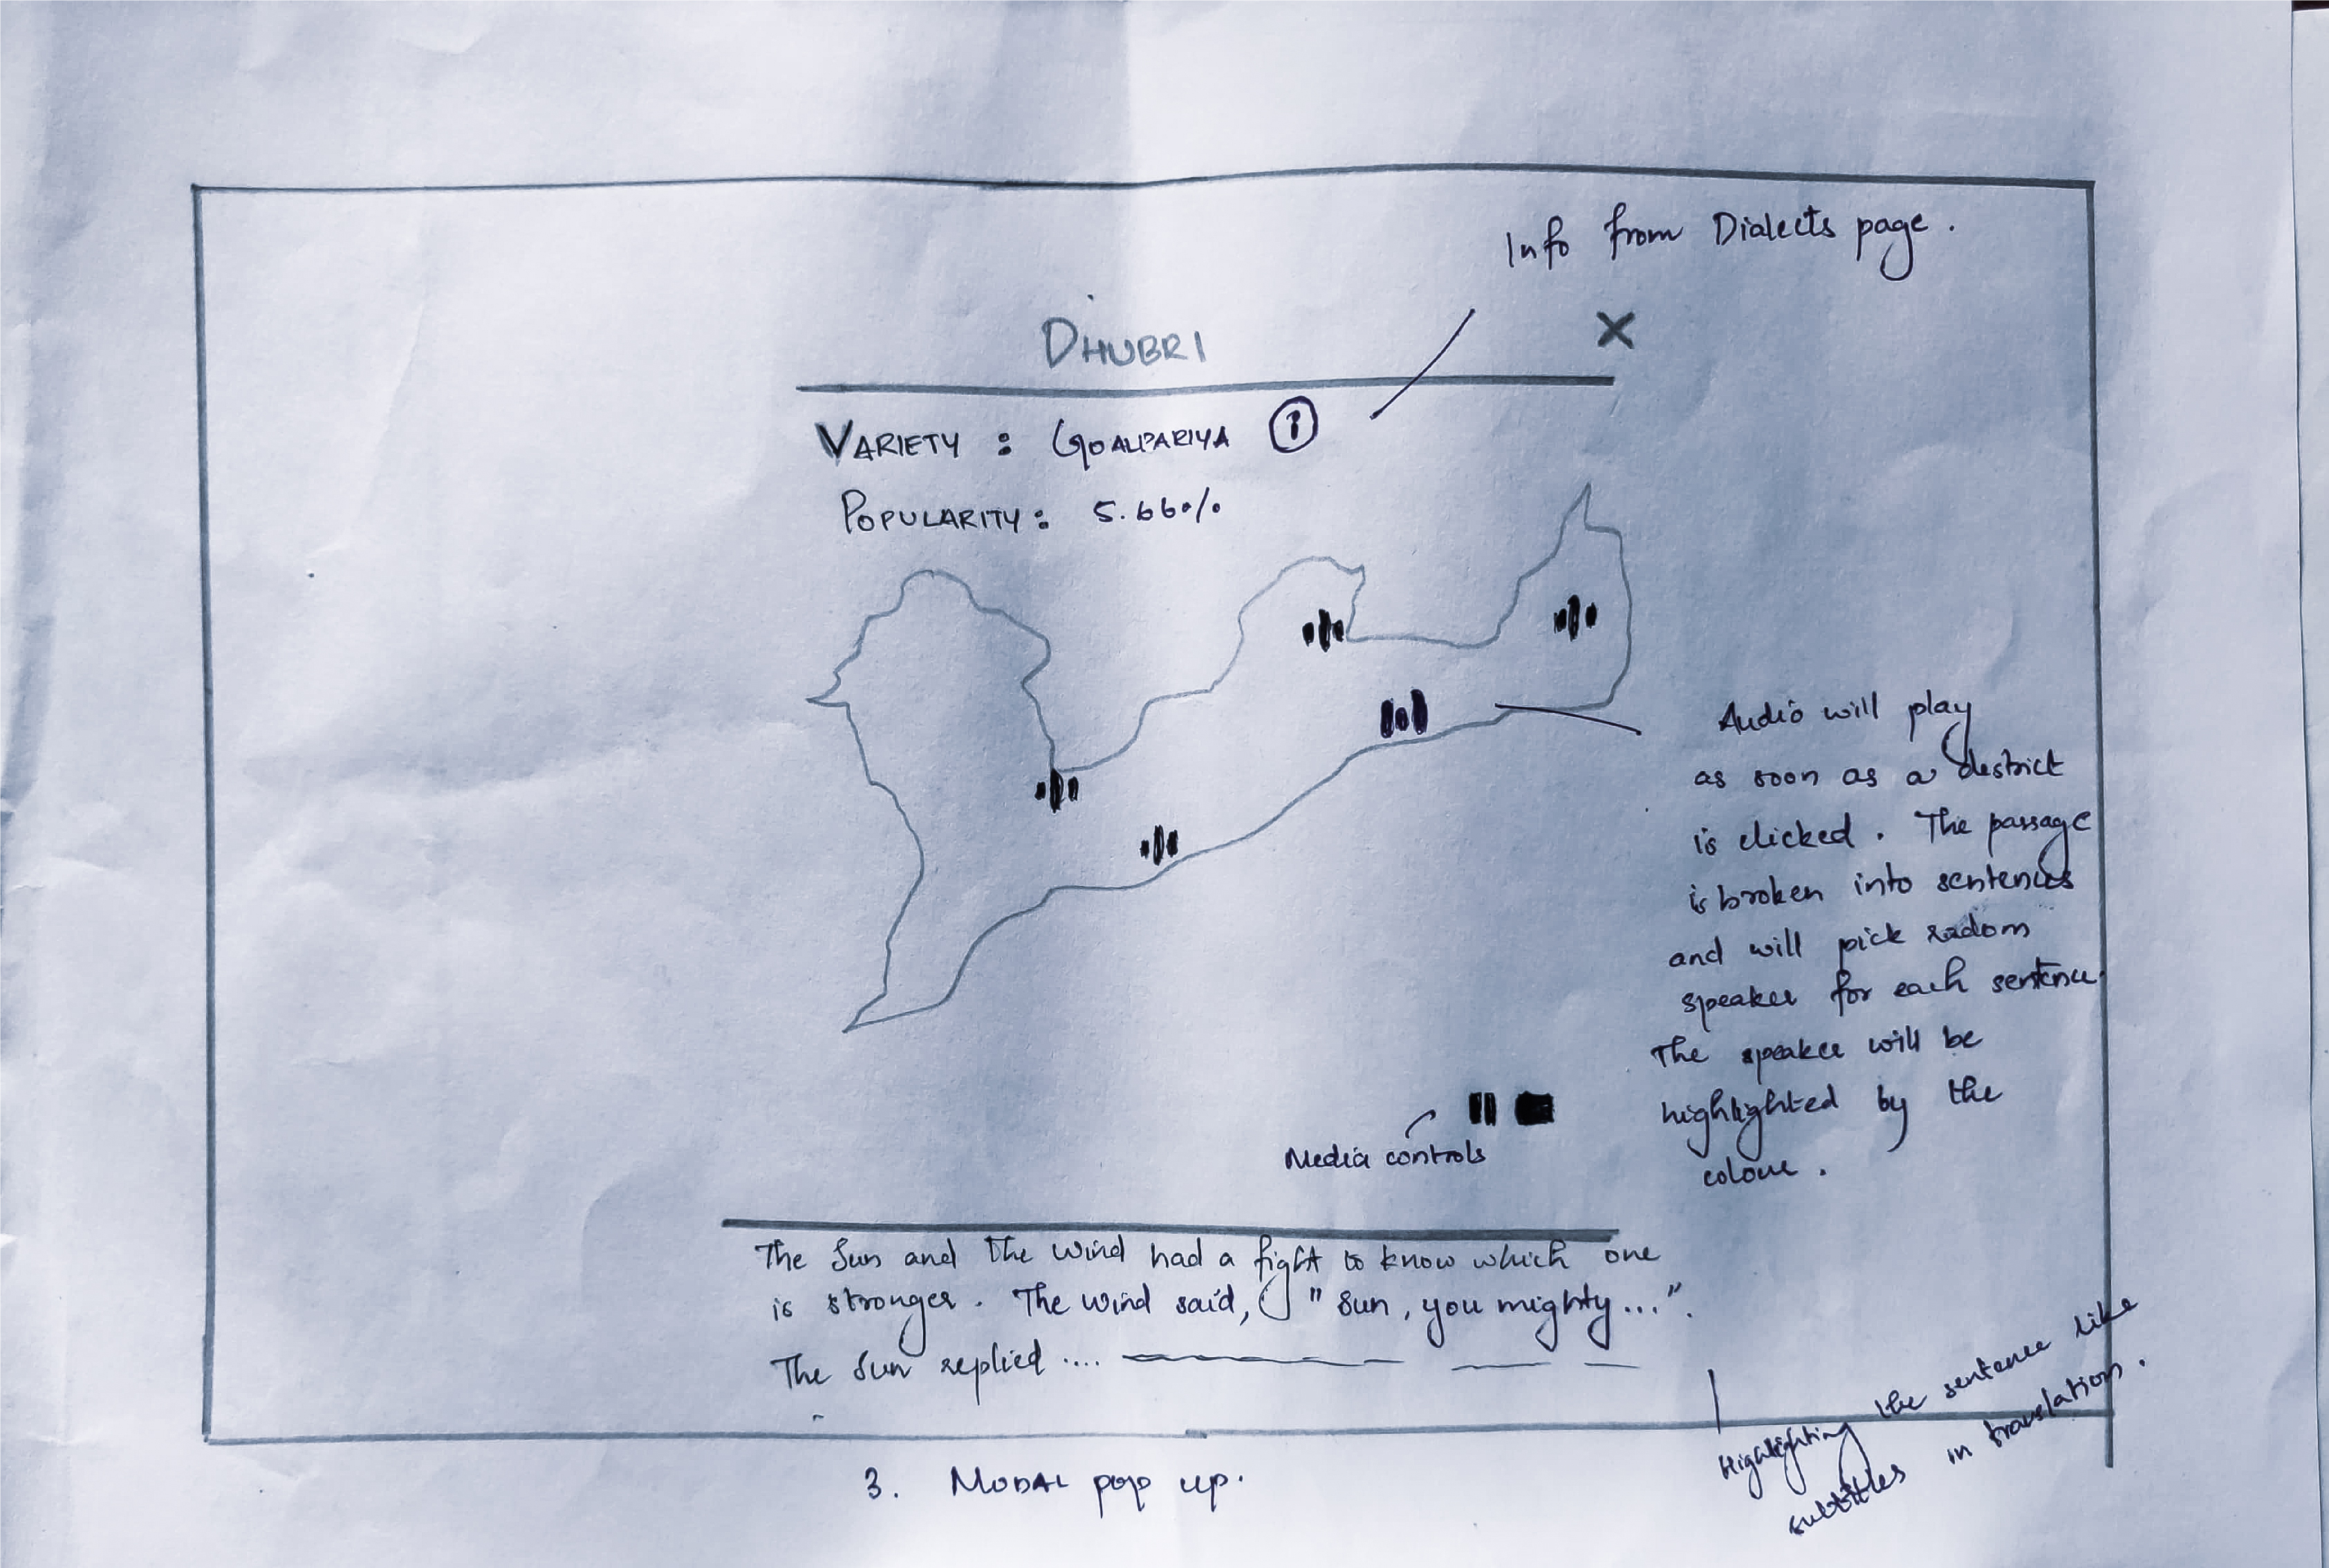 Info from Dialects page.
DHUBRI
X
VARIETY : GOALPARIYA i
POPULARITY: 5.66%
Audio will play
as soon as a district
is clicked. The passage
is broken into sentences
and will pick radom
speaker for each sentence.
The speaker will be
highlighted by the
colour.
Media controls
The Sun and the wind had a fight to know which one
is stronger. The wind said, "Sun, you mighty...".
The Sun replied ....
Highlighting the sentence like
subtitles in translation.
3. MODAL pop up.